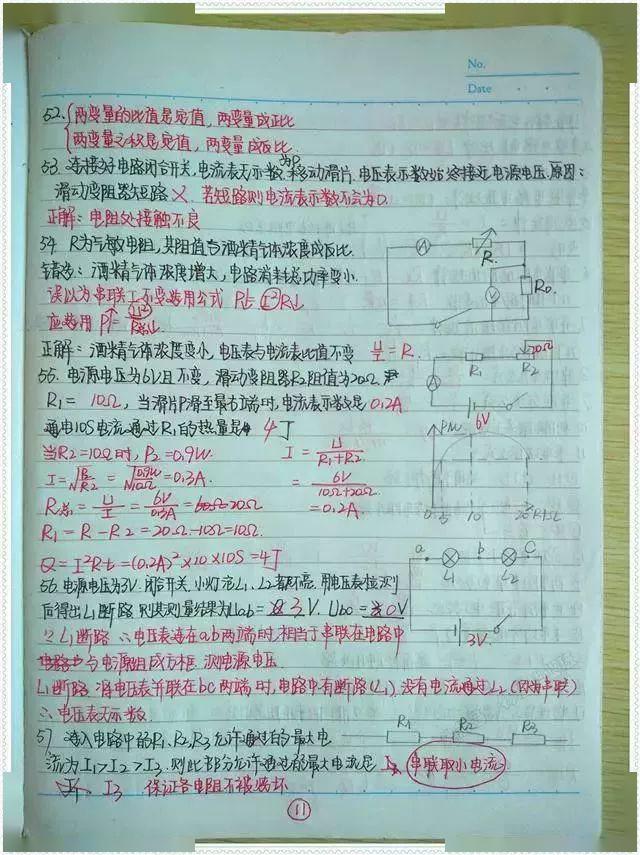 No.
Date
52. 两变量的比值是定值，两变量成正比
两变量之积是定值，两变量成反比.
53. 连接好电路闭合开关，电流表无示数，移动滑片P，电压表示数始终接近电源电压.原因：
滑动变阻器短路 ✗. 若短路则电流表示数不会为0.
正解：电阻处接触不良
54. R为气敏电阻，其阻值与酒精气体浓度成反比.
错选：酒精气体浓度增大，电路消耗总功率变小.
误以为串联I不变

选用公式 P=I²R
应选用
正解：酒精气体浓度变小，电压表与电流表比值不变 U/I=R.
55. 电源电压为6V且不变，滑动变阻器R2阻值为20Ω
R1= 10Ω，当滑片P滑至最右端时，电流表示数是 0.2A.
通电10S电流通过R1的热量是 4J
当R2=10Ω时，P2=0.9W.
I=√P2/R2=√0.9W/10Ω=0.3A.
R总=U/I=6V/0.3A=20Ω
R1=R-R2=20Ω-10Ω=10Ω.
I=U/R1+R2
=6V/10Ω+20Ω
=0.2A.
Q=I²Rt=(0.2A)²×10×10S=4J
56. 电源电压为3V. 闭合开关，小灯泡L1、L2都不亮. 用电压表检测
后得出L1断路 则其测量结果为Uab= 3V. Ubc= 0V
∵L1断路 ∴电压表连在ab两端时，相当于串联在电路中
与电源组成方框 测电源电压.
L1断路 当电压表并联在bc两端时，电路中有断路(L1)，没有电流通过L2
∴电压表无示数.
57 连入电路中的R1、R2、R3允许通过的最大电
流为I1>I2>I3. 则此部分允许通过的最大电流是 串联取小电流
I3 保证各电阻不被烧坏
A
R
V
R0
R1
R2
20Ω
A
P/W
6V
0
5
10
20
a
b
C
L1
L2
3V
R1
R2
R3
11